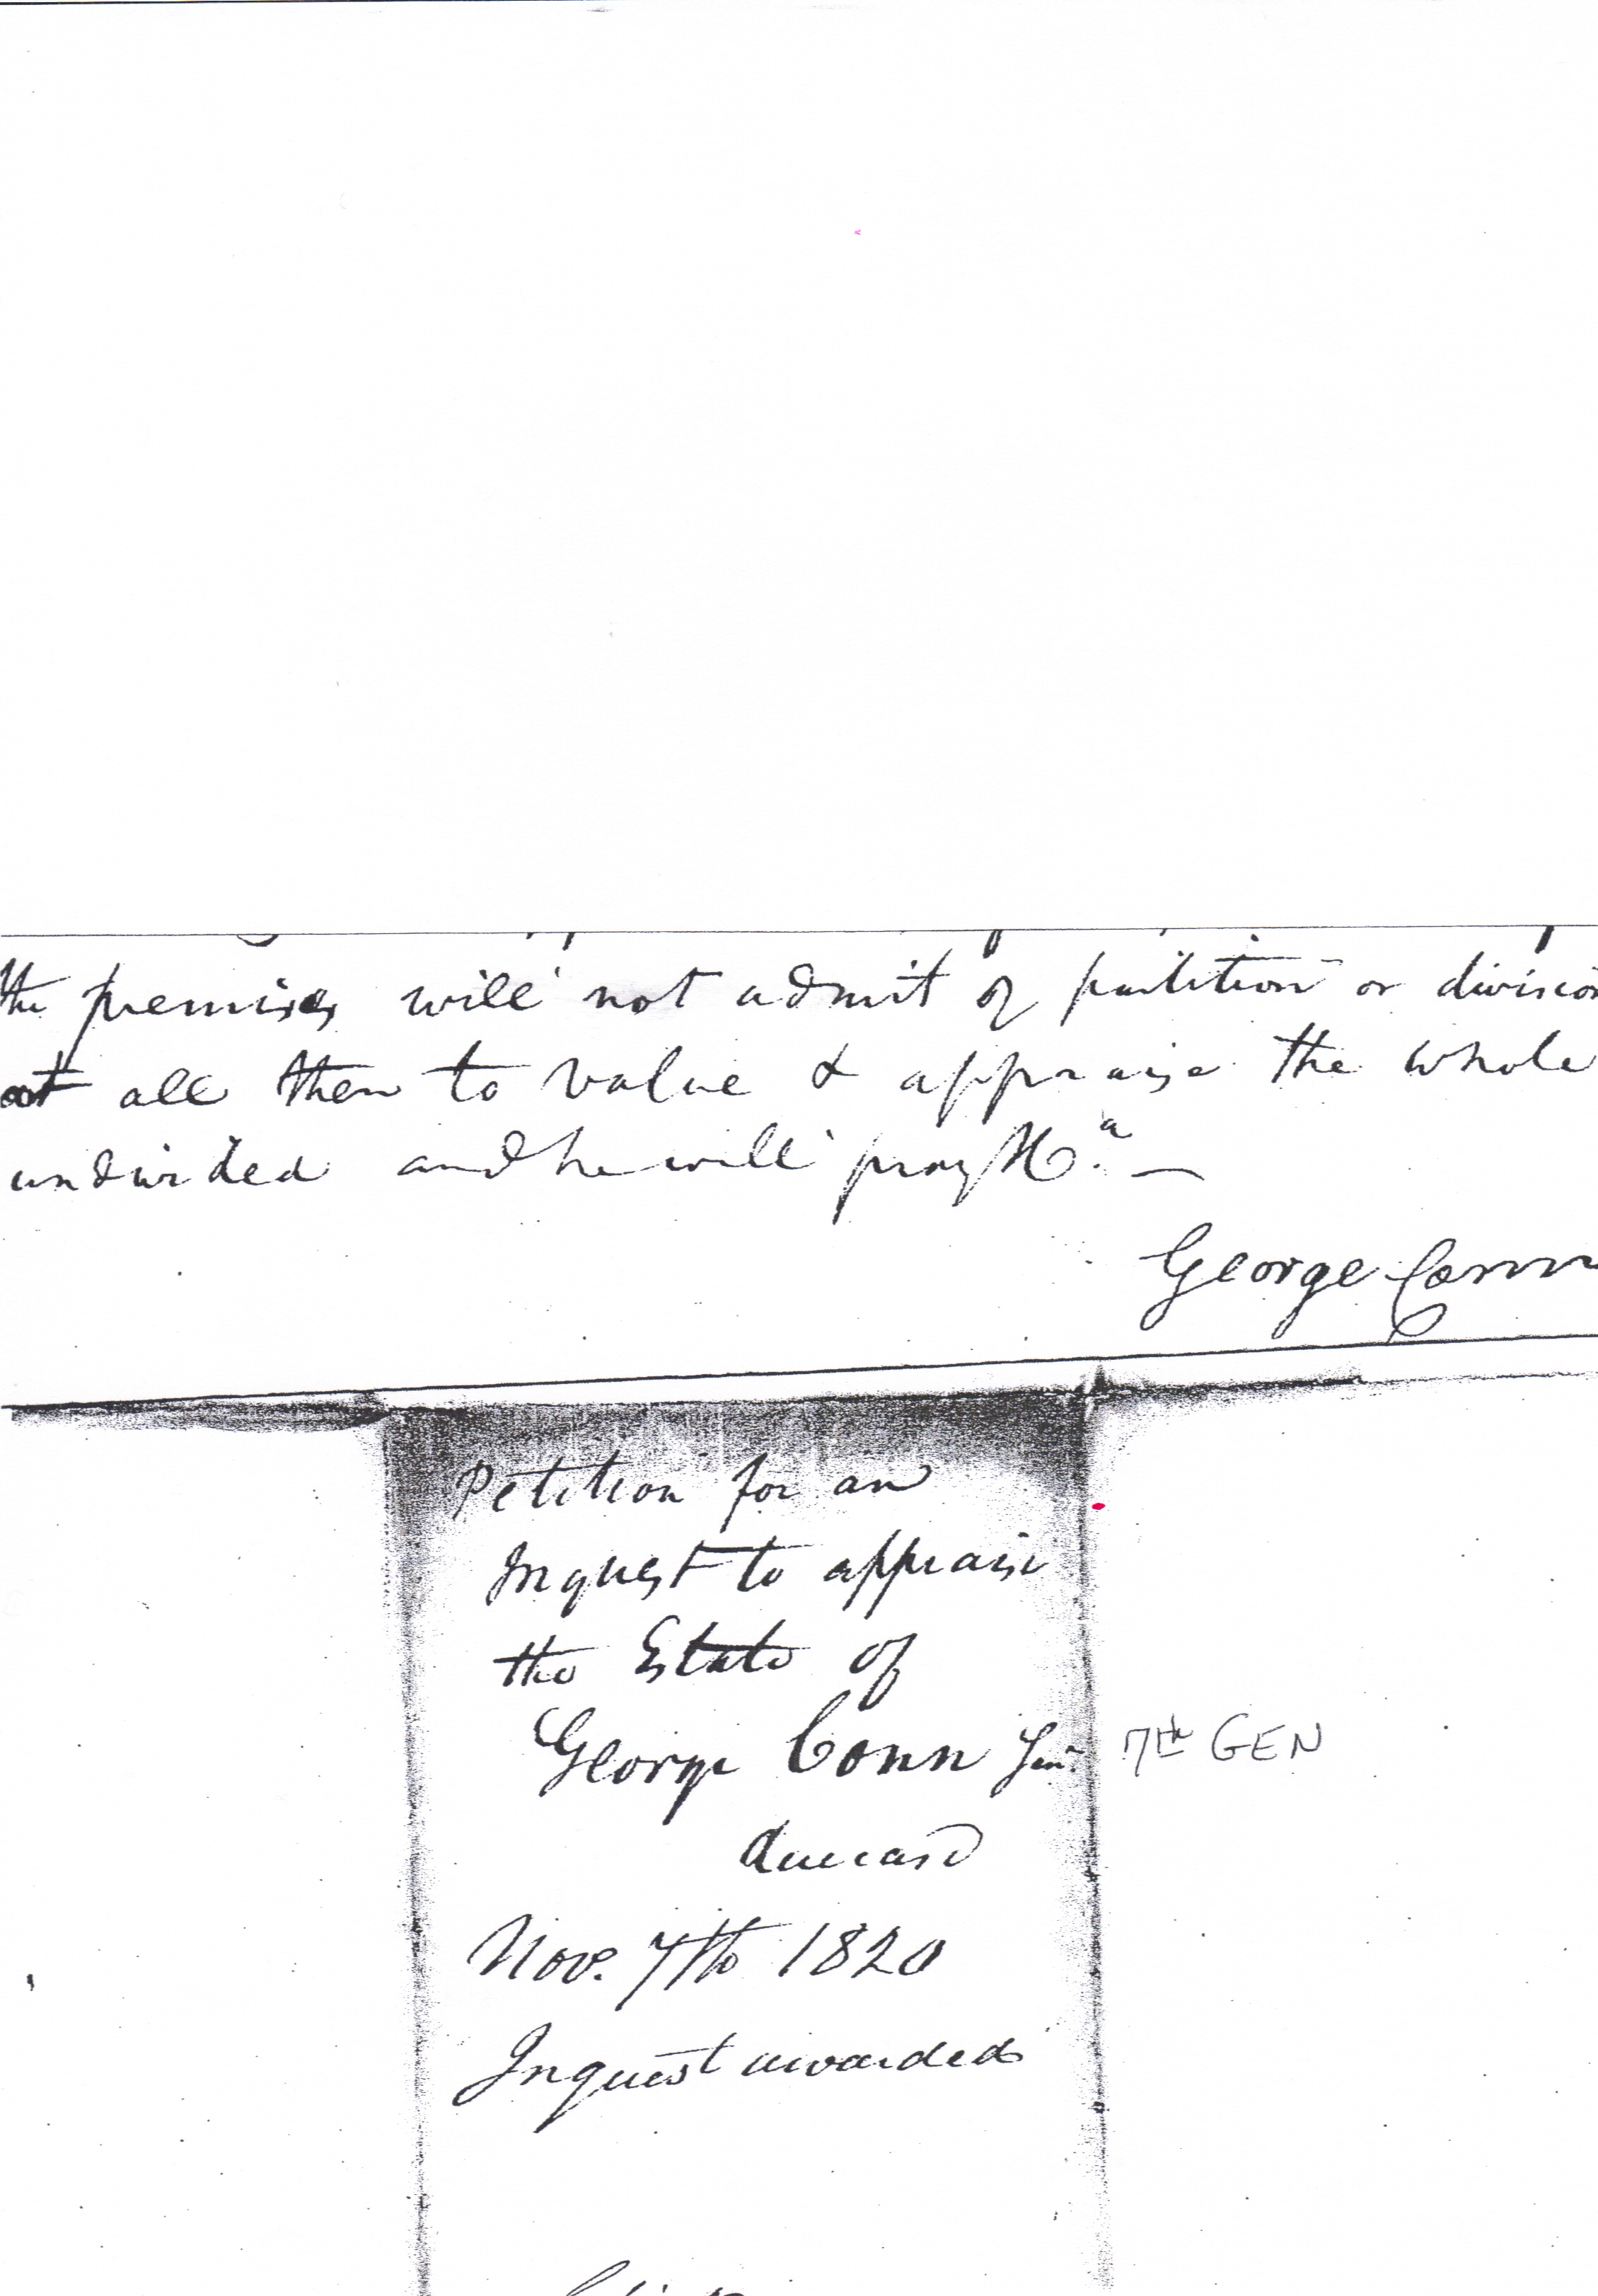 the premises will not admit of partition or division
at all then to value & appraise the whole
undivided and he will pray &c.a —
George Conn
Petition for an
Inquest to appraise
the Estate of
George Conn Senr 7th GEN
deceasd
Nov. 7th 1820
Inquest awarded